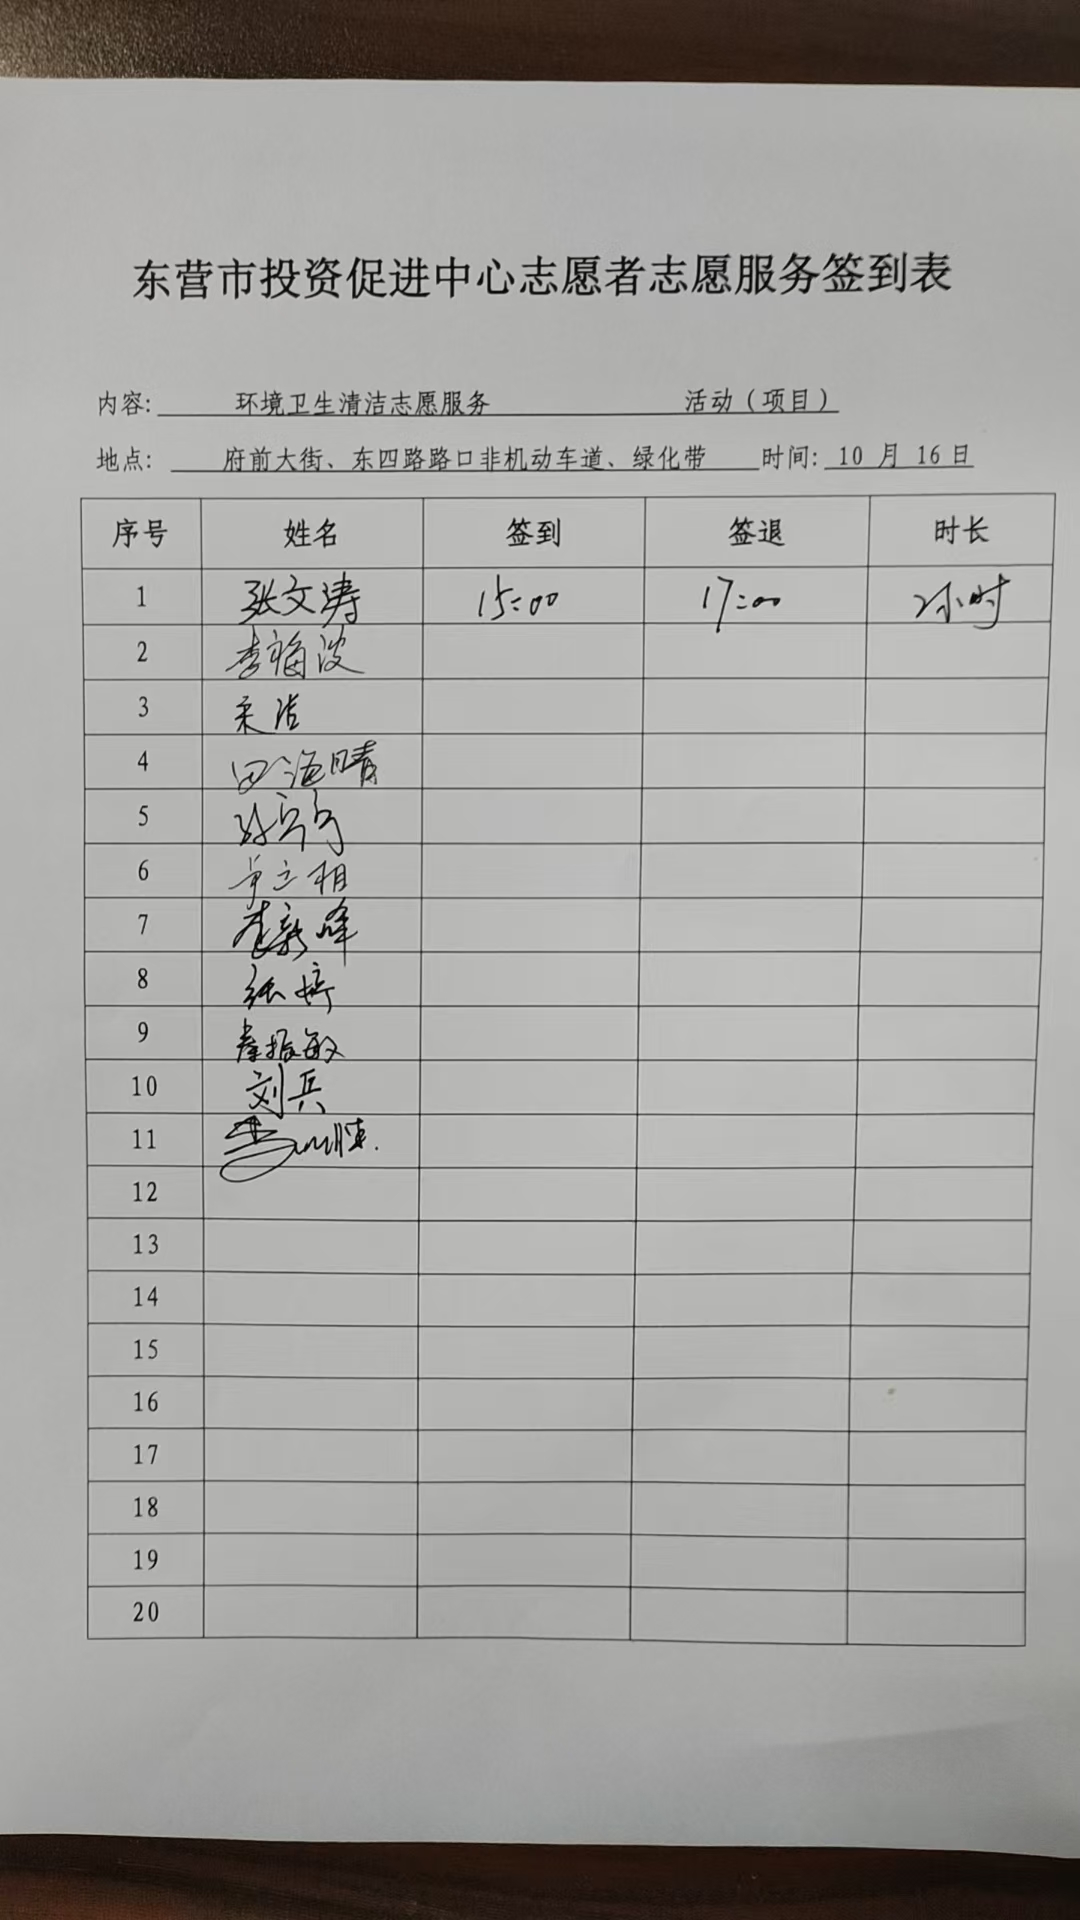 东营市投资促进中心志愿者志愿服务签到表
内容: 环境卫生清洁志愿服务 活动（项目）
地点: 府前大街、东四路路口非机动车道、绿化带 时间: 10 月 16 日
序号 姓名 签到 签退 时长
1 张文涛 15:00 17:00 2小时
2 李福波
3
4 田海晴
5
6
7 崔新峰
8 张婷
9 秦振敏
10 刘兵
11
12
13
14
15
16
17
18
19
20